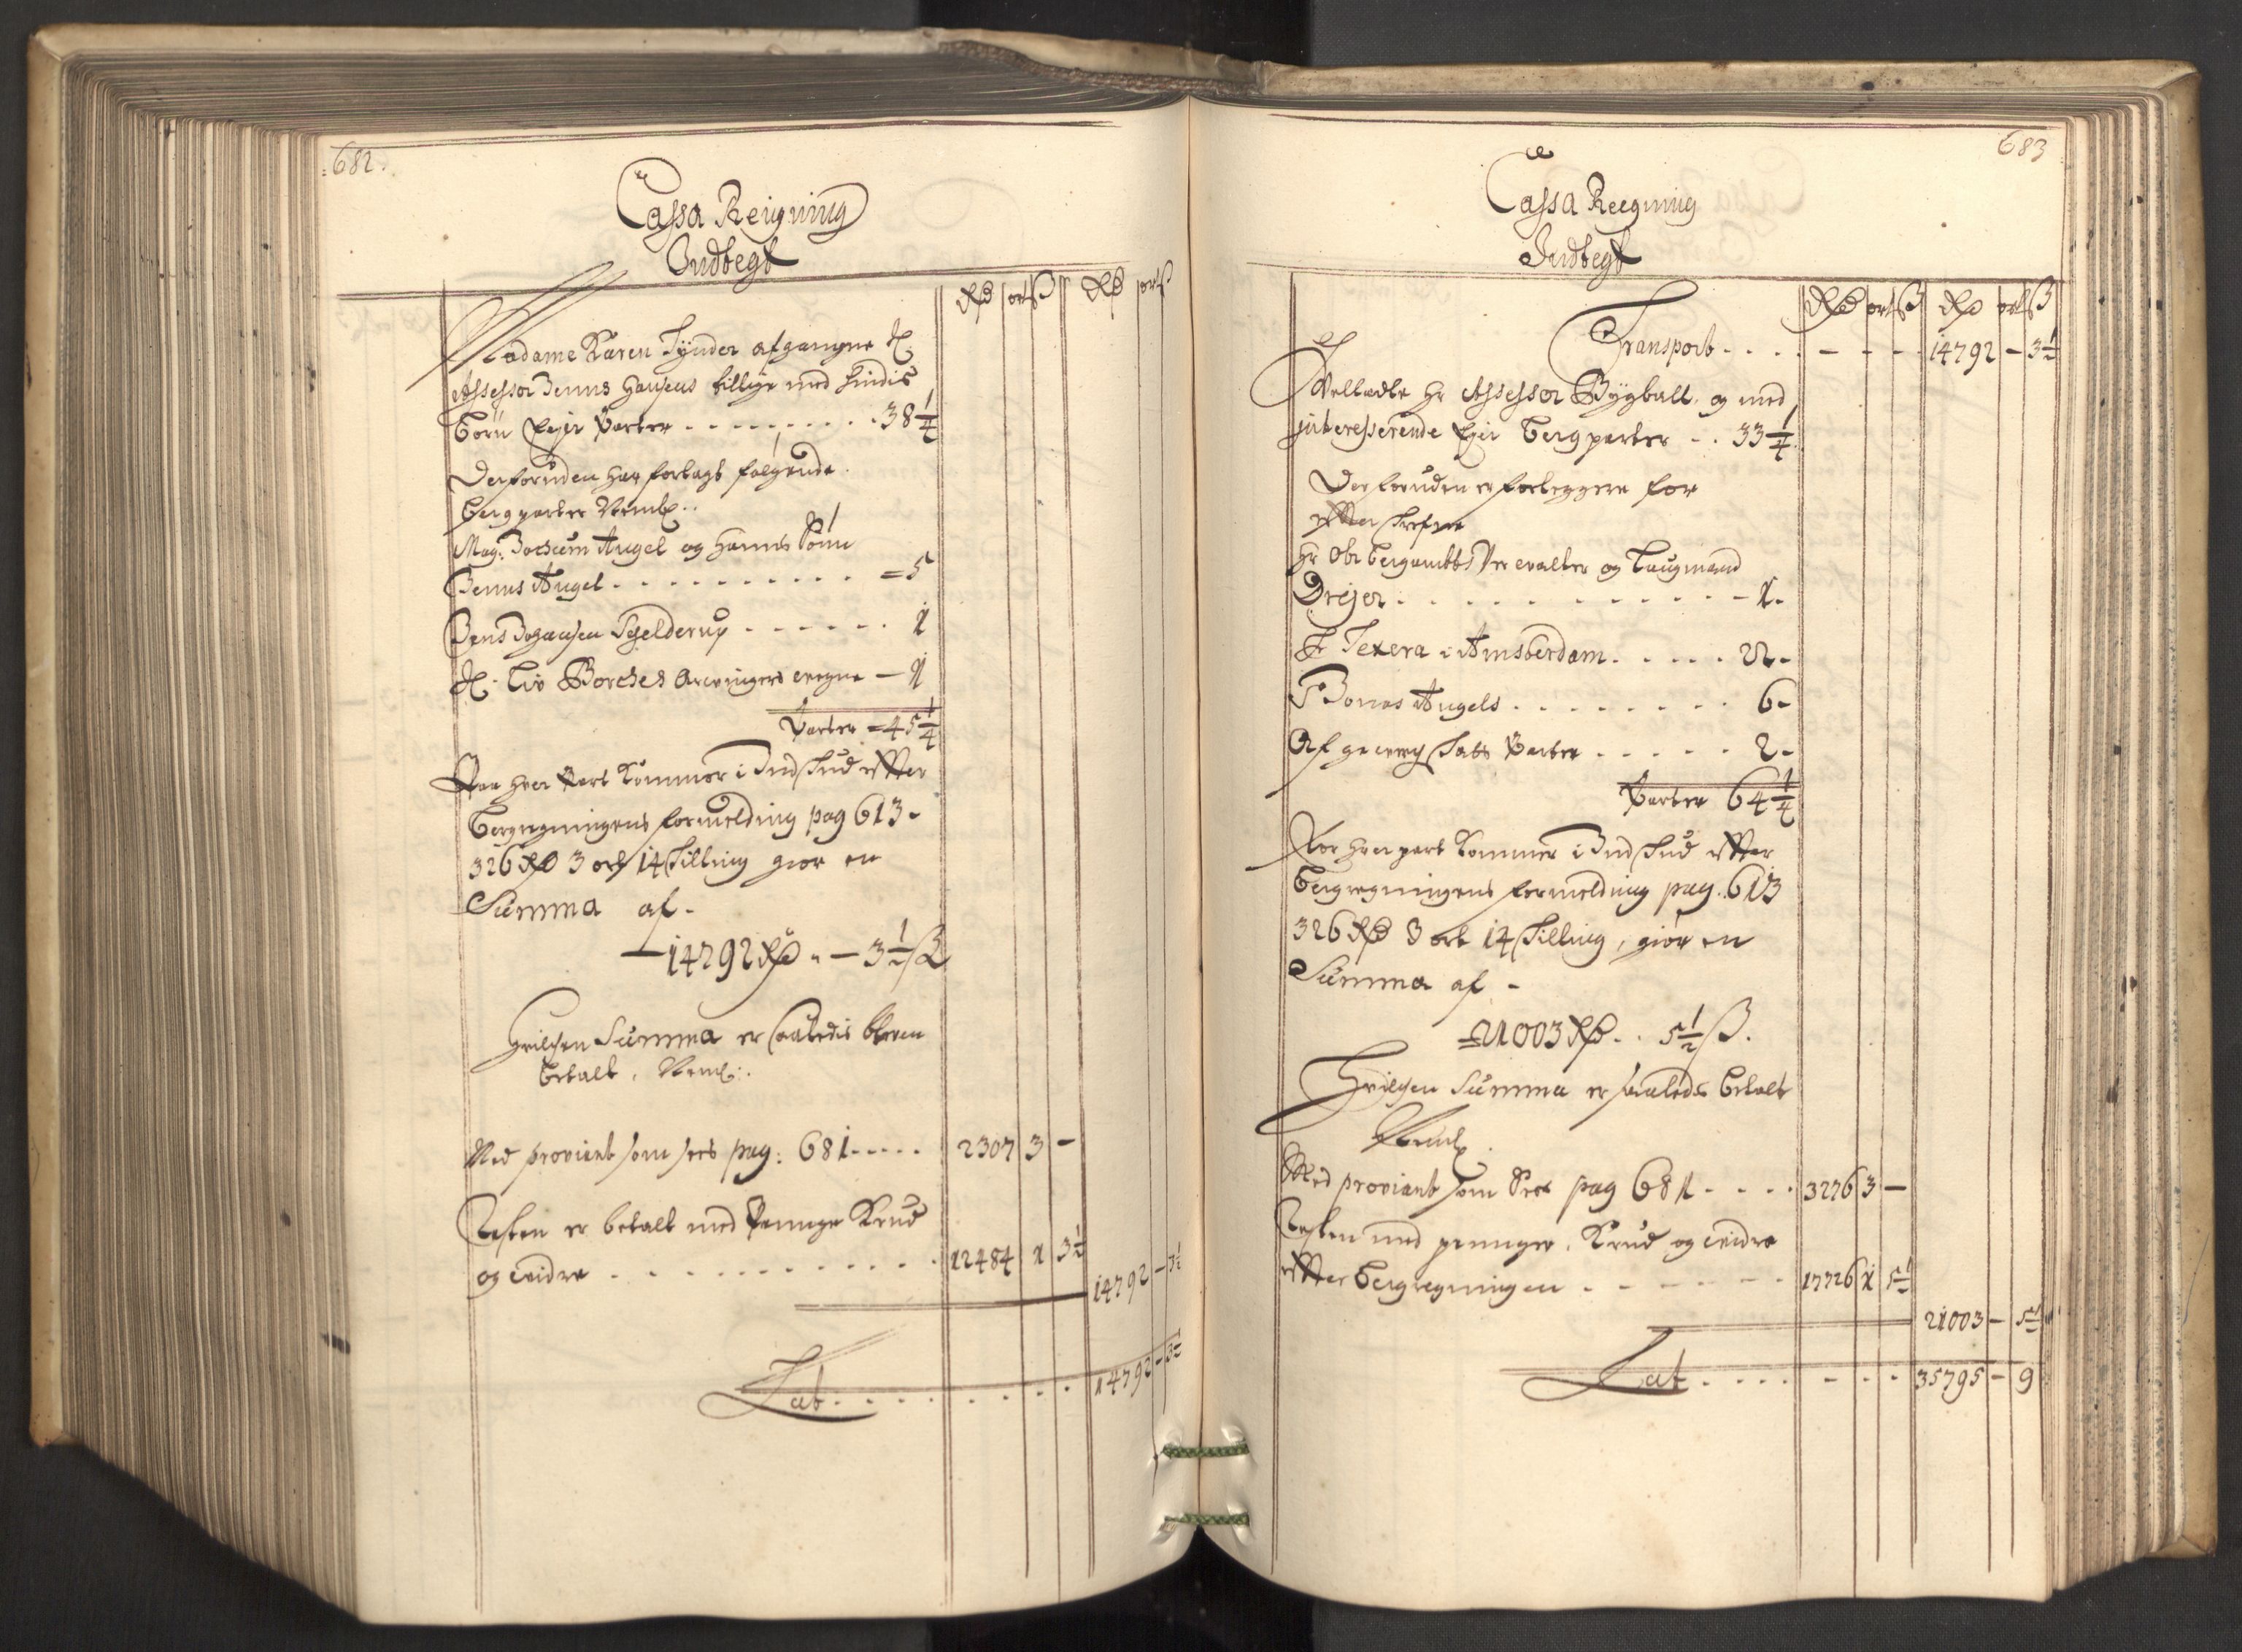 682.
Cassa Reigning
Indtegt
Rd ort ß Rd ort ß
Madame Karen Tijnder afgangne H:
Assessor Jenns Hansens tillige med Hindis
Børn Eyer Parter - - - - - - - - 38 1/4
Derforuden har fortagt følgende
Bergparter Neml:
Mag: Jochum Angel og Hannes Sönn
Jenns Angel - - - - - - - - - - = 5
Jens Johansen Schielderup - - - - - - 1
H: Lio Borches Arvingers egne - 1
Parter = 45 1/4
Paa hver Part Kommer i Indskud effter
Bergregningens formelding pag 613 -
326 Rd 3 ort 14 skilling giør en
Summa af -
- 14792 Rd " - 3 1/2 ß
Hvilchen Summa er saaledis bleven
betalt, Neml:
Med proviant som sees pag: 681 - - - - - 2307 3 -
Resten er betalt med Penninge Krud
og videre - - - - - - - - - - - - 12484 1 3 1/2
14792 - 3 1/2
Lat - - - - - - - - - 14792 - 3 1/2
683
Cassa Reegning
Indtegt
Rd ort ß Rd ort ß
Transport - - - - - - - 14792 - 3 1/2
Velædle Hr Assessor Bygball og med
interesserende Eyer Bergparter - - 33 1/4
Der foruden er forleggere for
effterskrefne
Hr Ober Bergambts Verevalter og Laugmand
Drejer - - - - - - - - - - - - 1 -
Hr Texera i Amsterdam - - - - - 22 -
Sr Jonas Angels - - - - - - - - 6 -
Af gevercksatte Parter - - - - - 2 -
Parter 64 1/4
For hver part Kommer i Indskud effter
Bergregningens formelding pag. 613
326 Rd 3 ort 14 skilling, giør en
Summa af -
= 21003 Rd - - 5 1/2 ß.
Hvilchen Summa er saaleds betalt
Neml:
Med proviant som Sees pag 681 - - - - 3276 3 -
Resten med penninger, Krud og videre
effter Bergregningen - - - - - - - 17726 1 5 1/2
21003 - 5 1/2
Lat - - - - - - - 35795 - 9